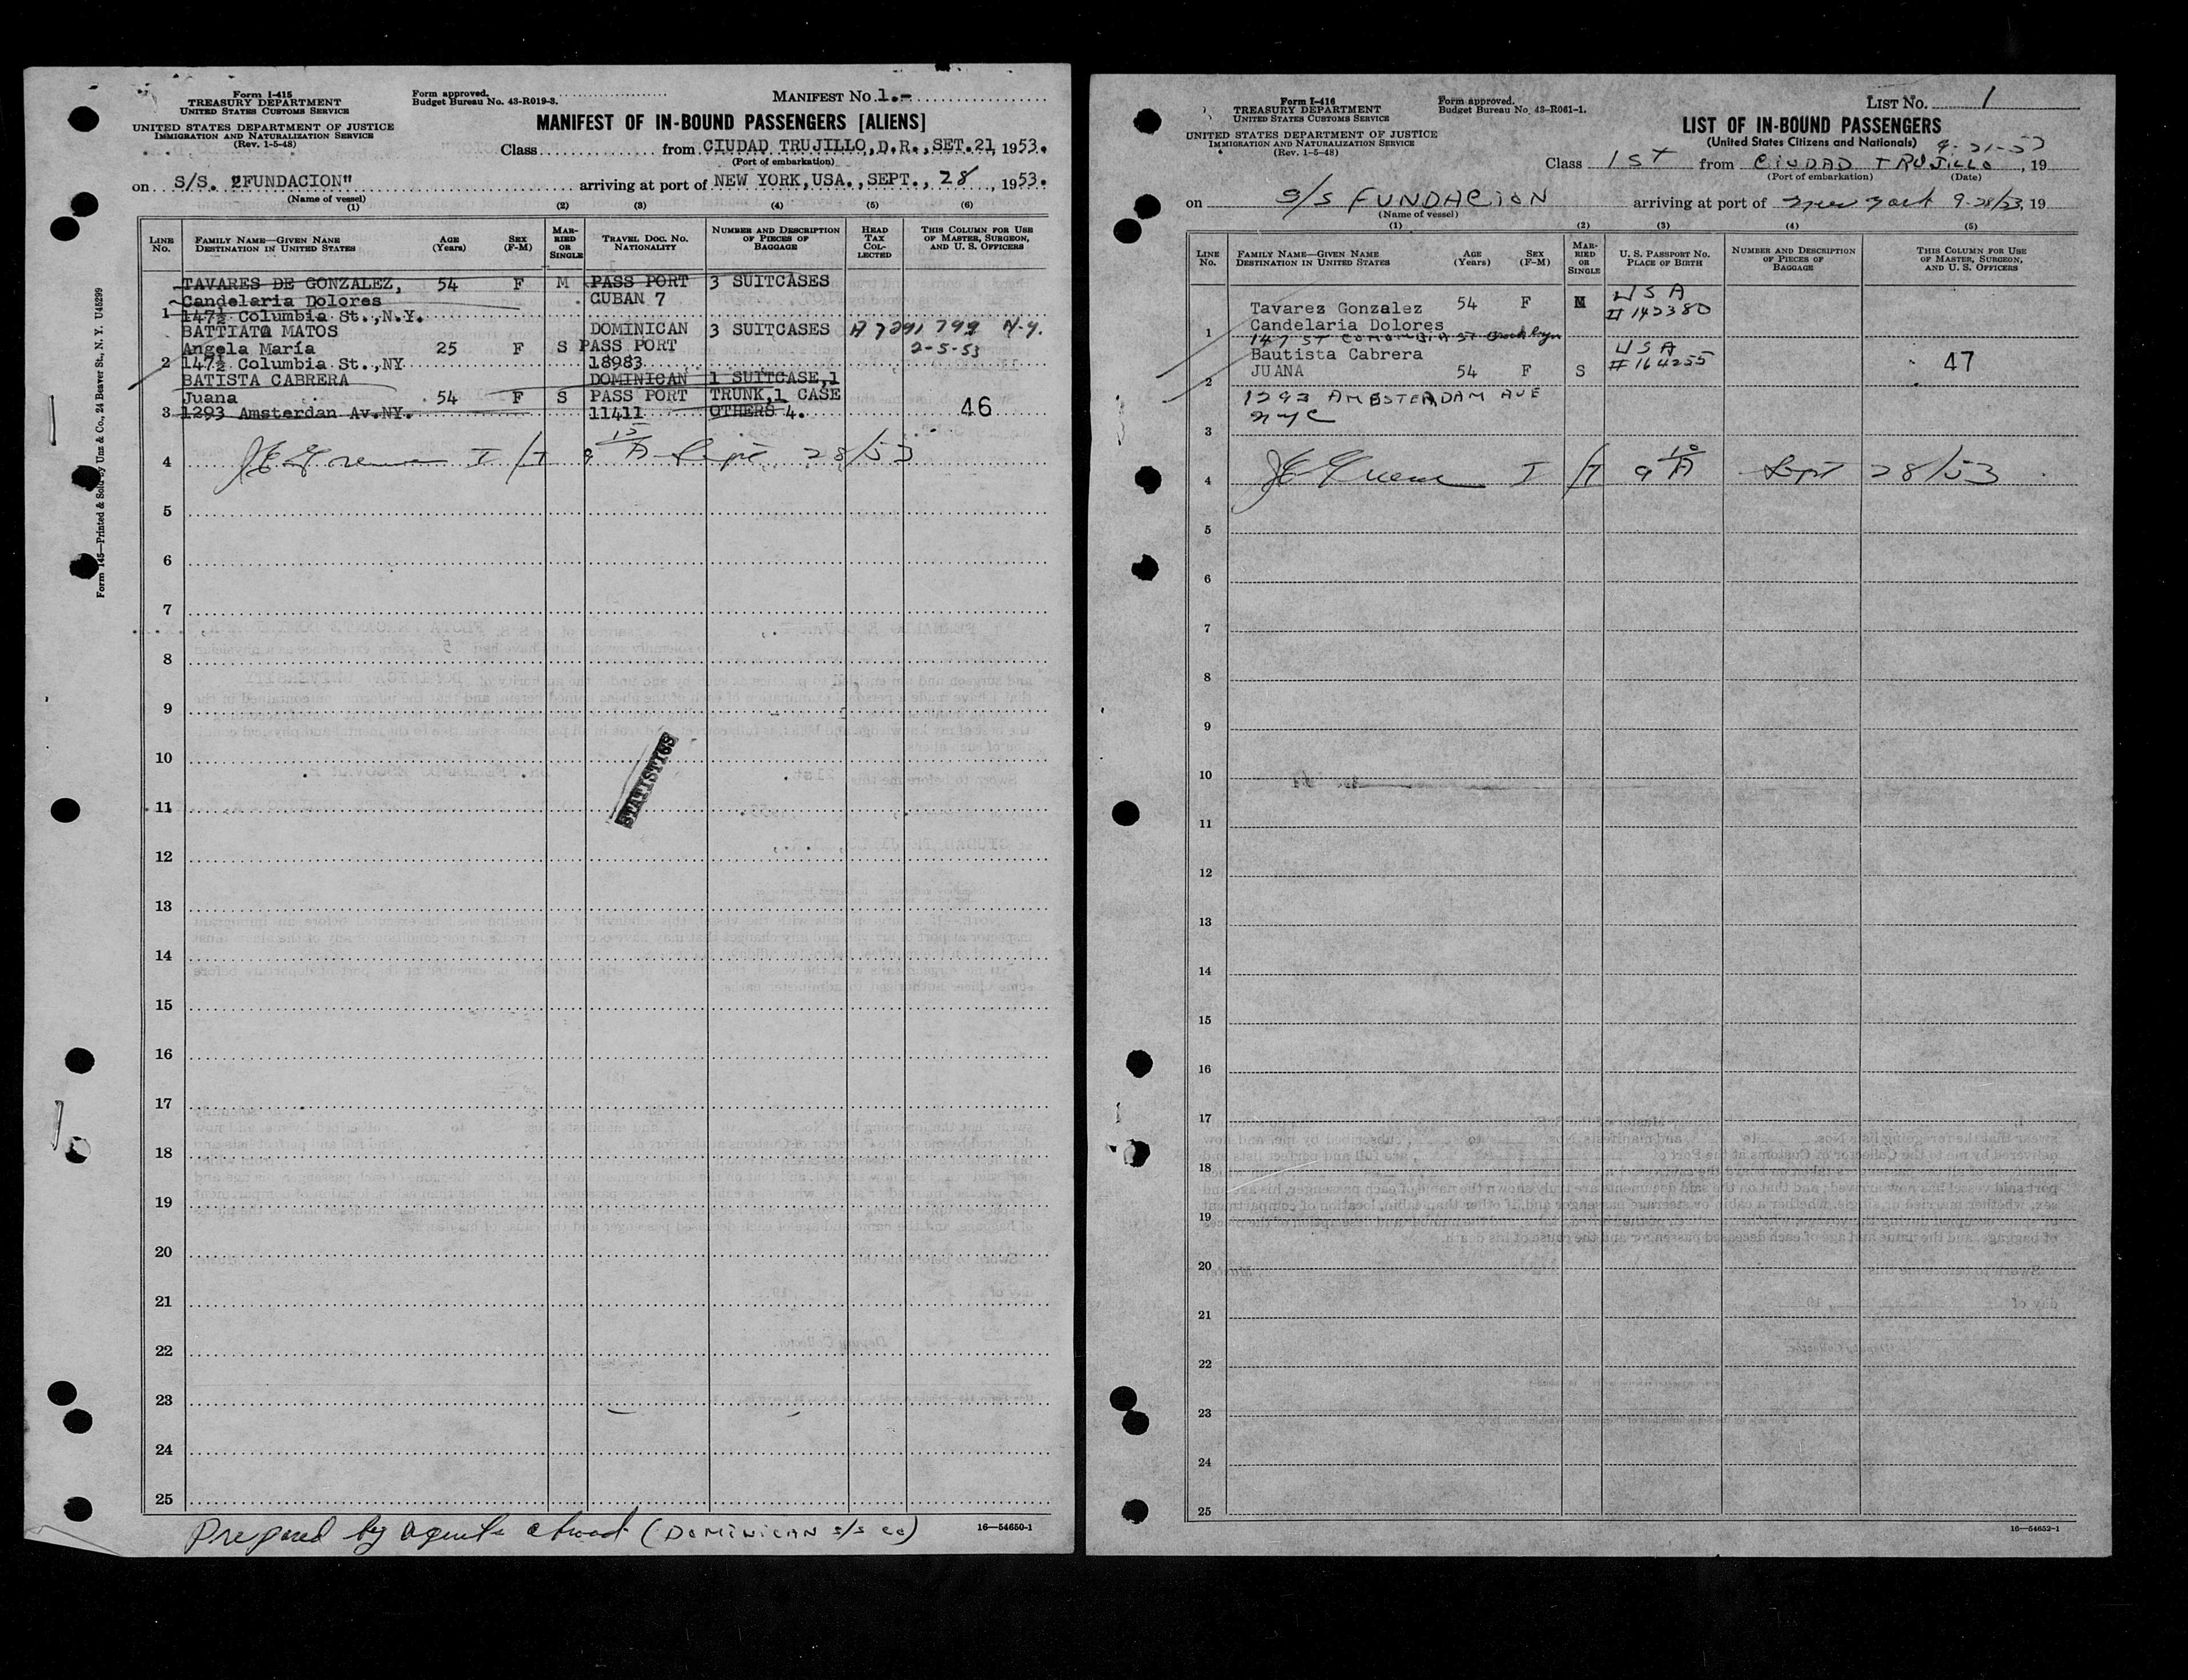 Form I-415
TREASURY DEPARTMENT
UNITED STATES CUSTOMS SERVICE
UNITED STATES DEPARTMENT OF JUSTICE
IMMIGRATION AND NATURALIZATION SERVICE
(Rev. 1-5-48)
Form approved.
Budget Bureau No. 43-R019-3.
MANIFEST NO. 1.-
MANIFEST OF IN-BOUND PASSENGERS [ALIENS]
Class from CIUDAD TRUJILLO, D.R., SET. 21, 1953.
(Port of embarkation)
on S/S. "FUNDACION" arriving at port of NEW YORK, USA., SEPT., 28, 1953.
(Name of vessel)
(1) (2) (3) (4) (5) (6)
LINE No. FAMILY NAME—GIVEN NAME DESTINATION IN UNITED STATES AGE (Years) SEX (F-M) MARRIED OR SINGLE TRAVEL DOC. NO. NATIONALITY NUMBER AND DESCRIPTION OF PIECES OF BAGGAGE HEAD TAX COLLECTED THIS COLUMN FOR USE OF MASTER, SURGEON, AND U. S. OFFICERS
TAVARES DE GONZALEZ, 54 F M PASS PORT 3 SUITCASES
Candelaria Dolores CUBAN 7
1 147½ Columbia St.,N.Y.
BATTIATA MATOS DOMINICAN 3 SUITCASES A7291799 N.Y.
Angela María 25 F S PASS PORT 2-5-53
2 147½ Columbia St.,NY 18983
BATISTA CABRERA DOMINICAN 1 SUITCASE,1
Juana 54 F S PASS PORT TRUNK,1 CASE
3 1293 Amsterdan Av.NY. 11411 OTHERS 4. 46
4 I/I 9 15 A Sept 28/53
5
6
7
8
9
10
STATISTICS
11
12
13
14
15
16
17
18
19
20
21
22
23
24
25
Prepared by agents abroad (DOMINICAN S/S CO)
16—54650-1
Form 145—Printed & Sold by Unz & Co., 24 Beaver St., N. Y. U45299
Form I-416
TREASURY DEPARTMENT
UNITED STATES CUSTOMS SERVICE
UNITED STATES DEPARTMENT OF JUSTICE
IMMIGRATION AND NATURALIZATION SERVICE
(Rev. 1-5-48)
Form approved.
Budget Bureau No. 43-R061-1.
LIST NO. 1
LIST OF IN-BOUND PASSENGERS
(United States Citizens and Nationals)
9-21-53
Class 1ST from CIUDAD TRUJILLO, 19
(Port of embarkation) (Date)
on S/S FUNDACION arriving at port of New York 9-28/53, 19
(Name of vessel)
(1) (2) (3) (4) (5)
LINE No. FAMILY NAME—GIVEN NAME DESTINATION IN UNITED STATES AGE (Years) SEX (F-M) MARRIED OR SINGLE U. S. PASSPORT NO. PLACE OF BIRTH NUMBER AND DESCRIPTION OF PIECES OF BAGGAGE THIS COLUMN FOR USE OF MASTER, SURGEON, AND U. S. OFFICERS
Tavarez Gonzalez 54 F M USA
Candelaria Dolores # 142380
1 147 ST COLOMBIA ST Brooklyn
Bautista Cabrera USA
2 JUANA 54 F S # 164255 47
1293 AMESTERDAM AVE
3 NYC
4 I/I 9 10 A Sept 28/53
5
6
7
8
9
10
11
12
13
14
15
16
17
18
19
20
21
22
23
24
25
16—54652-1